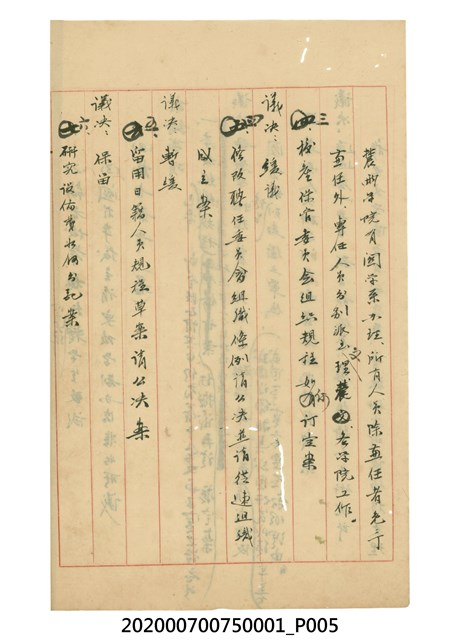 農 學院有關學系辦理、所有人員除兼任者
兼任外、專任人員分別派在文理農各學院工作。
三、校產保管委員會組織規程如何訂定案
議決、緩議
四、修改聘任委員會組織條例請公決並請從速組織
成立案
議決、暫緩
五、留用日籍人員規程草案請公決案
議決、保留
六、研究設備費如何分配案
202000700750001_P005